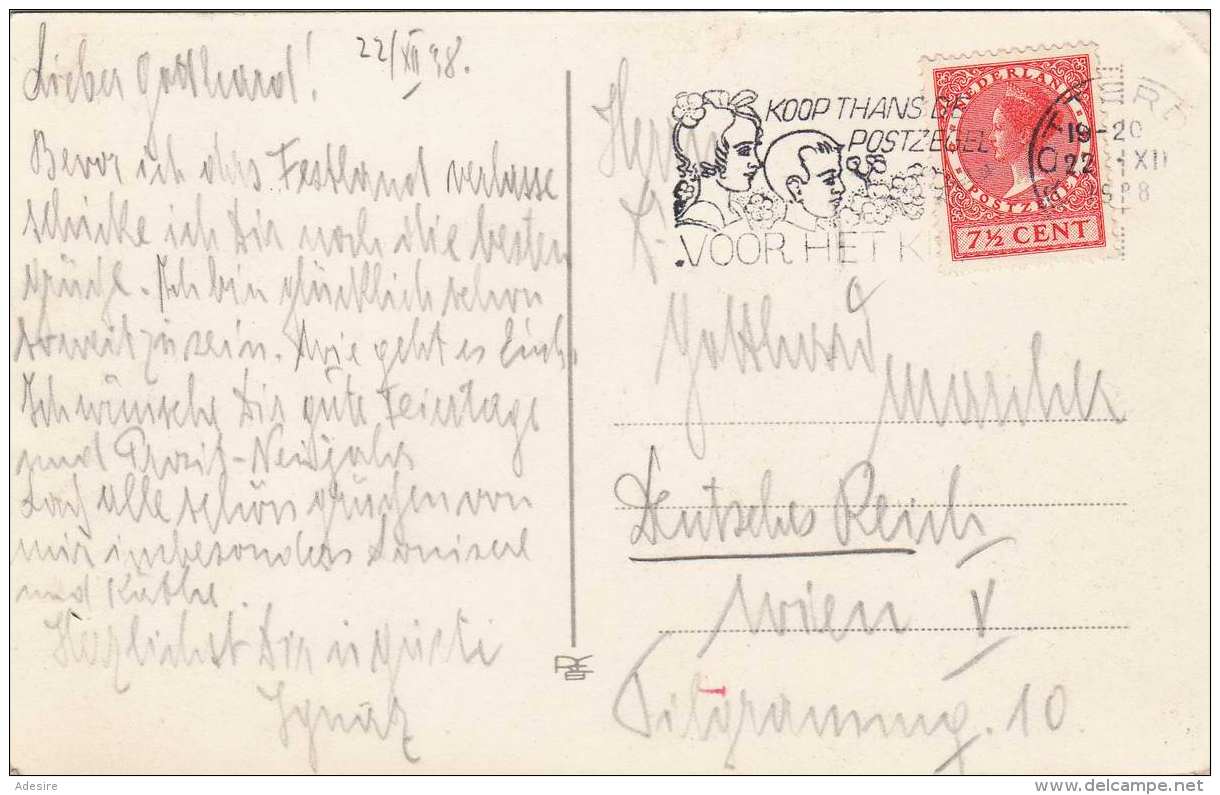 22/XII 38.
Lieber Gotthard!
Bevor ich das Festland verlasse
schicke ich Dir noch die besten
Grüße. Ich bin glücklich schon
soweit zu sein. Wie geht es Euch.
Ich wünsche Dir gute Feiertage
und Prosit-Neujahr
Laß alle schön grüßen von
mir insbesonders
und Käthe.
Herzlichst Dir
Ignaz
KOOP THANS DE
POSTZEGEL
VOOR HET K
NEDERLAND
POSTZEGEL
7½ CENT
19-20
22 XII
Herrn
Gotthard
Deutsches Reich
Wien V
Pilgramg. 10
Adesire
www.delcampe.net